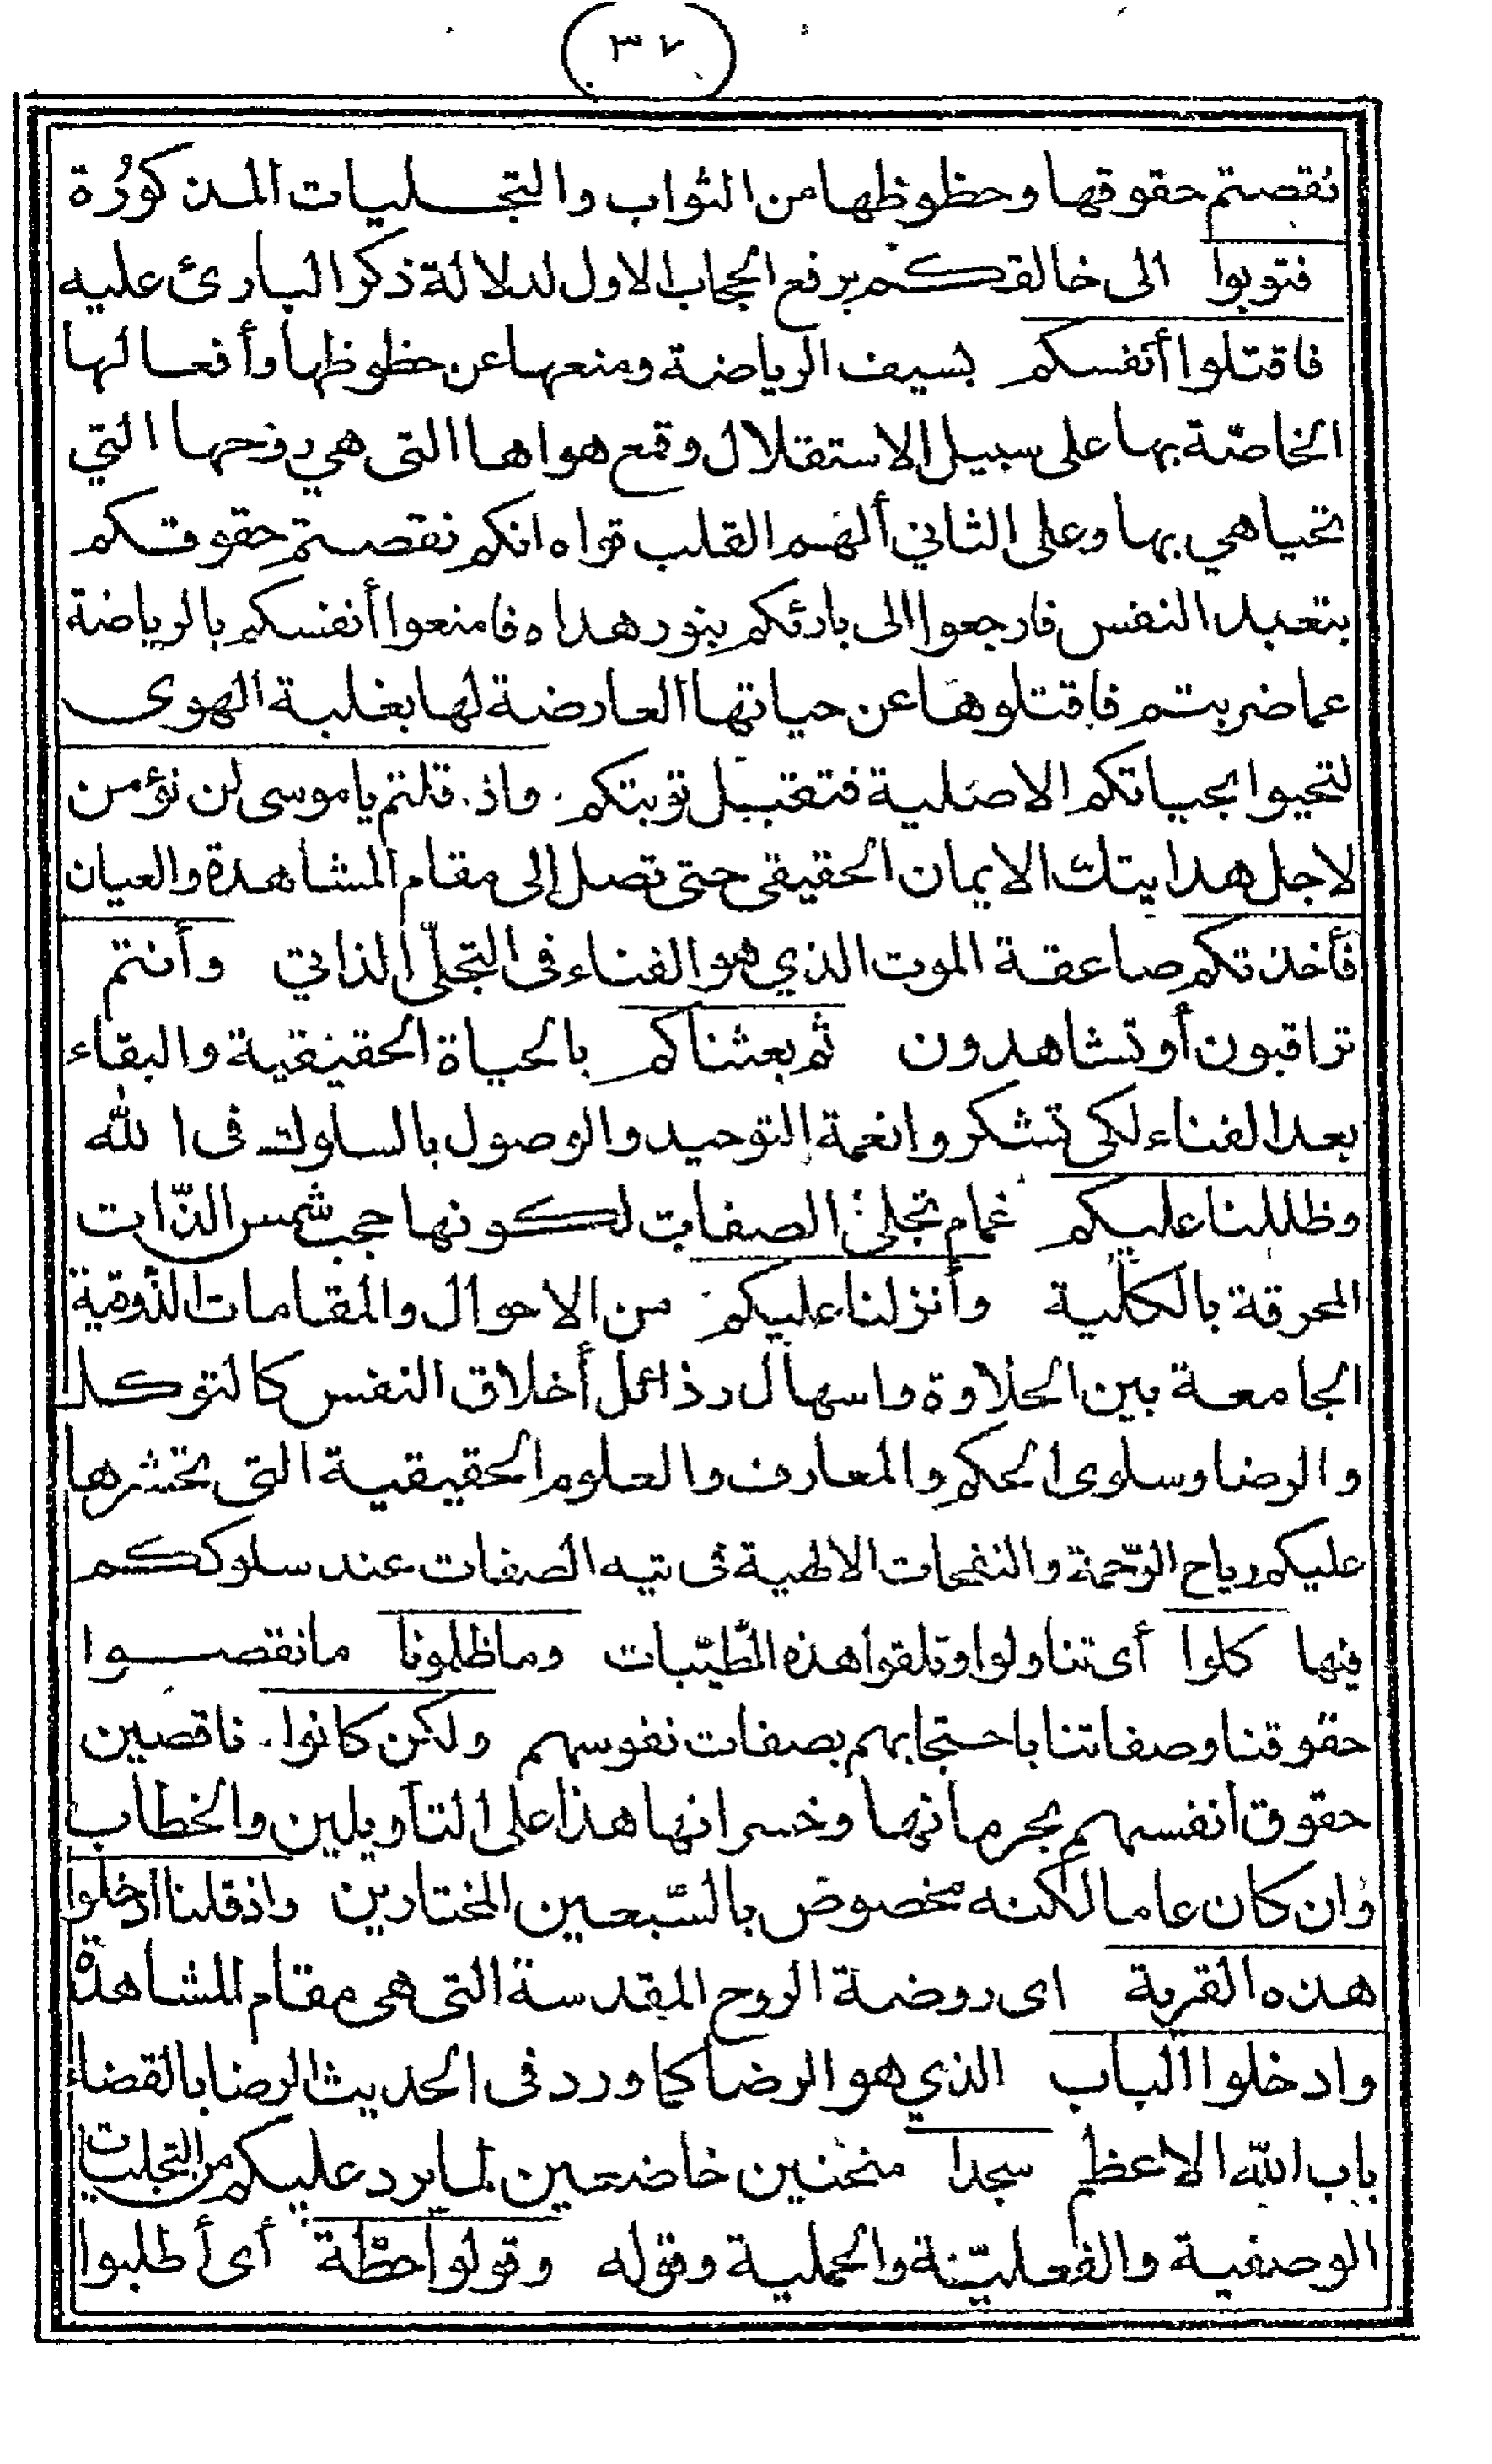 ٣٧
نقصتم حقوقها وحظوظها من الثواب والتجليات المذكورة
فتوبوا الى خالقكم برفع الحجاب الاول لدلالة ذكر البارئ عليه
فاقتلوا أنفسكم بسيف الرياضة ومنعها عن حظوظها وأفعالها
الخاصّة بها على سبيل الاستقلال وقمع هواها التى هي روحها التي
تحيا هي بها وعلى الثاني ألهم القلب قواه انكم نقصتم حقوقكم
بتعبد النفس فارجعوا الى بارئكم بنور هداه فامنعوا أنفسكم بالرياضة
عما ضربتم فاقتلوها عن حياتها العارضة لها بغلبة الهوى
لتحيوا بحياتكم الاصلية فتقبل توبتكم. واذ قلتم يا موسى لن نؤمن
لاجل هدايتك الايمان الحقيقى حتى تصل إلى مقام المشاهدة والعيان
فأخذتكم صاعقة الموت الذي هو الفناء فى التجلّى الذاتي وأنتم
تراقبون أو تشاهدون ثم بعثناكم بالحياة الحقيقية والبقاء
بعد الفناء لكى تشكروا نعمة التوحيد والوصول بالسلوك فى الله
وظللنا عليكم غمام تجلى الصفات لكونها حجب شمس الذّات
المحرقة بالكلية وأنزلنا عليكم من الاحوال والمقامات الذّوقية
الجامعة بين الحلاوة واسهال رذائل أخلاق النفس كالتوكل
والرضا وسلوى الحكم والمعارف والعلوم الحقيقية التى تحشرها
عليكم رياح الرّحمة والنفحات الالهية فى تيه الصفات عند سلوككم
فيها كلوا أى تناولوا وتلقوا هذه الطّيّبات وما ظلمونا ما نقصوا
حقوقنا وصفاتنا باحتجابهم بصفات نفوسهم ولكن كانوا. ناقصين
حقوق انفسهم بحرمانها وخسرانها هذا على التأويلين والخطاب
وان كان عاما لكنه مخصوص بالسّبعين المختارين واذ قلنا ادخلوا
هذه القرية اى روضة الروح المقدسة التى هى مقام المشاهدة
وادخلوا الباب الذي هو الرضا كما ورد فى الحديث الرضا بالقضاء
باب الله الاعظم سجدا منحنين خاضعين لما يرد عليكم من التجليات
الوصفية والفعليّة والحملية وقوله وقولوا حطّة أى أطلبوا